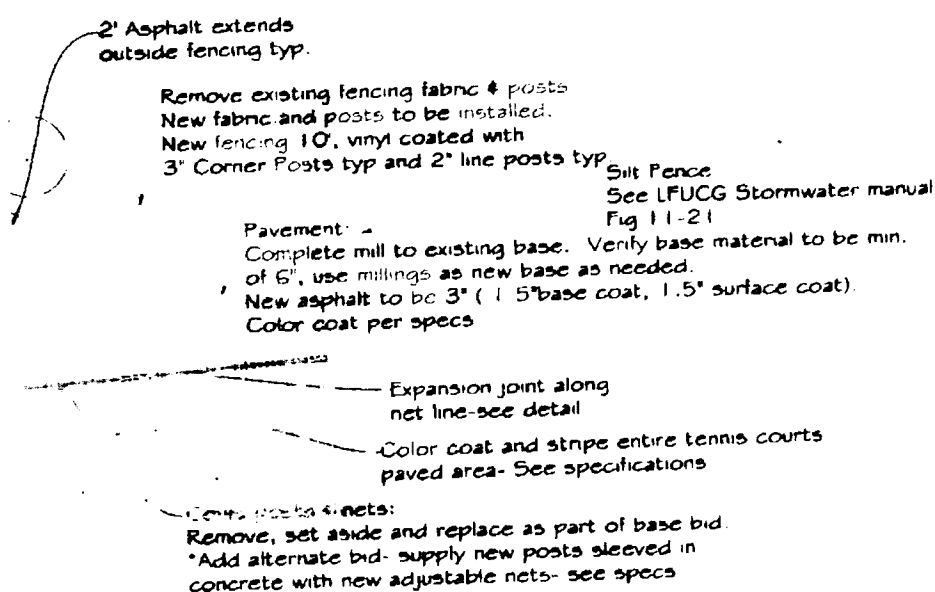 2' Asphalt extends
outside fencing typ.
Remove existing fencing fabric & posts
New fabric and posts to be installed.
New fencing 10', vinyl coated with
3" Corner Posts typ and 2" line posts typ.
Silt Fence
See LFUCG Stormwater manual
Fig 11-21
Pavement:
Complete mill to existing base. Verify base material to be min.
of 6", use millings as new base as needed.
New asphalt to be 3" ( 1.5" base coat, 1.5" surface coat).
Color coat per specs
Expansion joint along
net line-see detail
Color coat and stripe entire tennis courts
paved area- See specifications
nets:
Remove, set aside and replace as part of base bid.
*Add alternate bid- supply new posts sleeved in
concrete with new adjustable nets- see specs